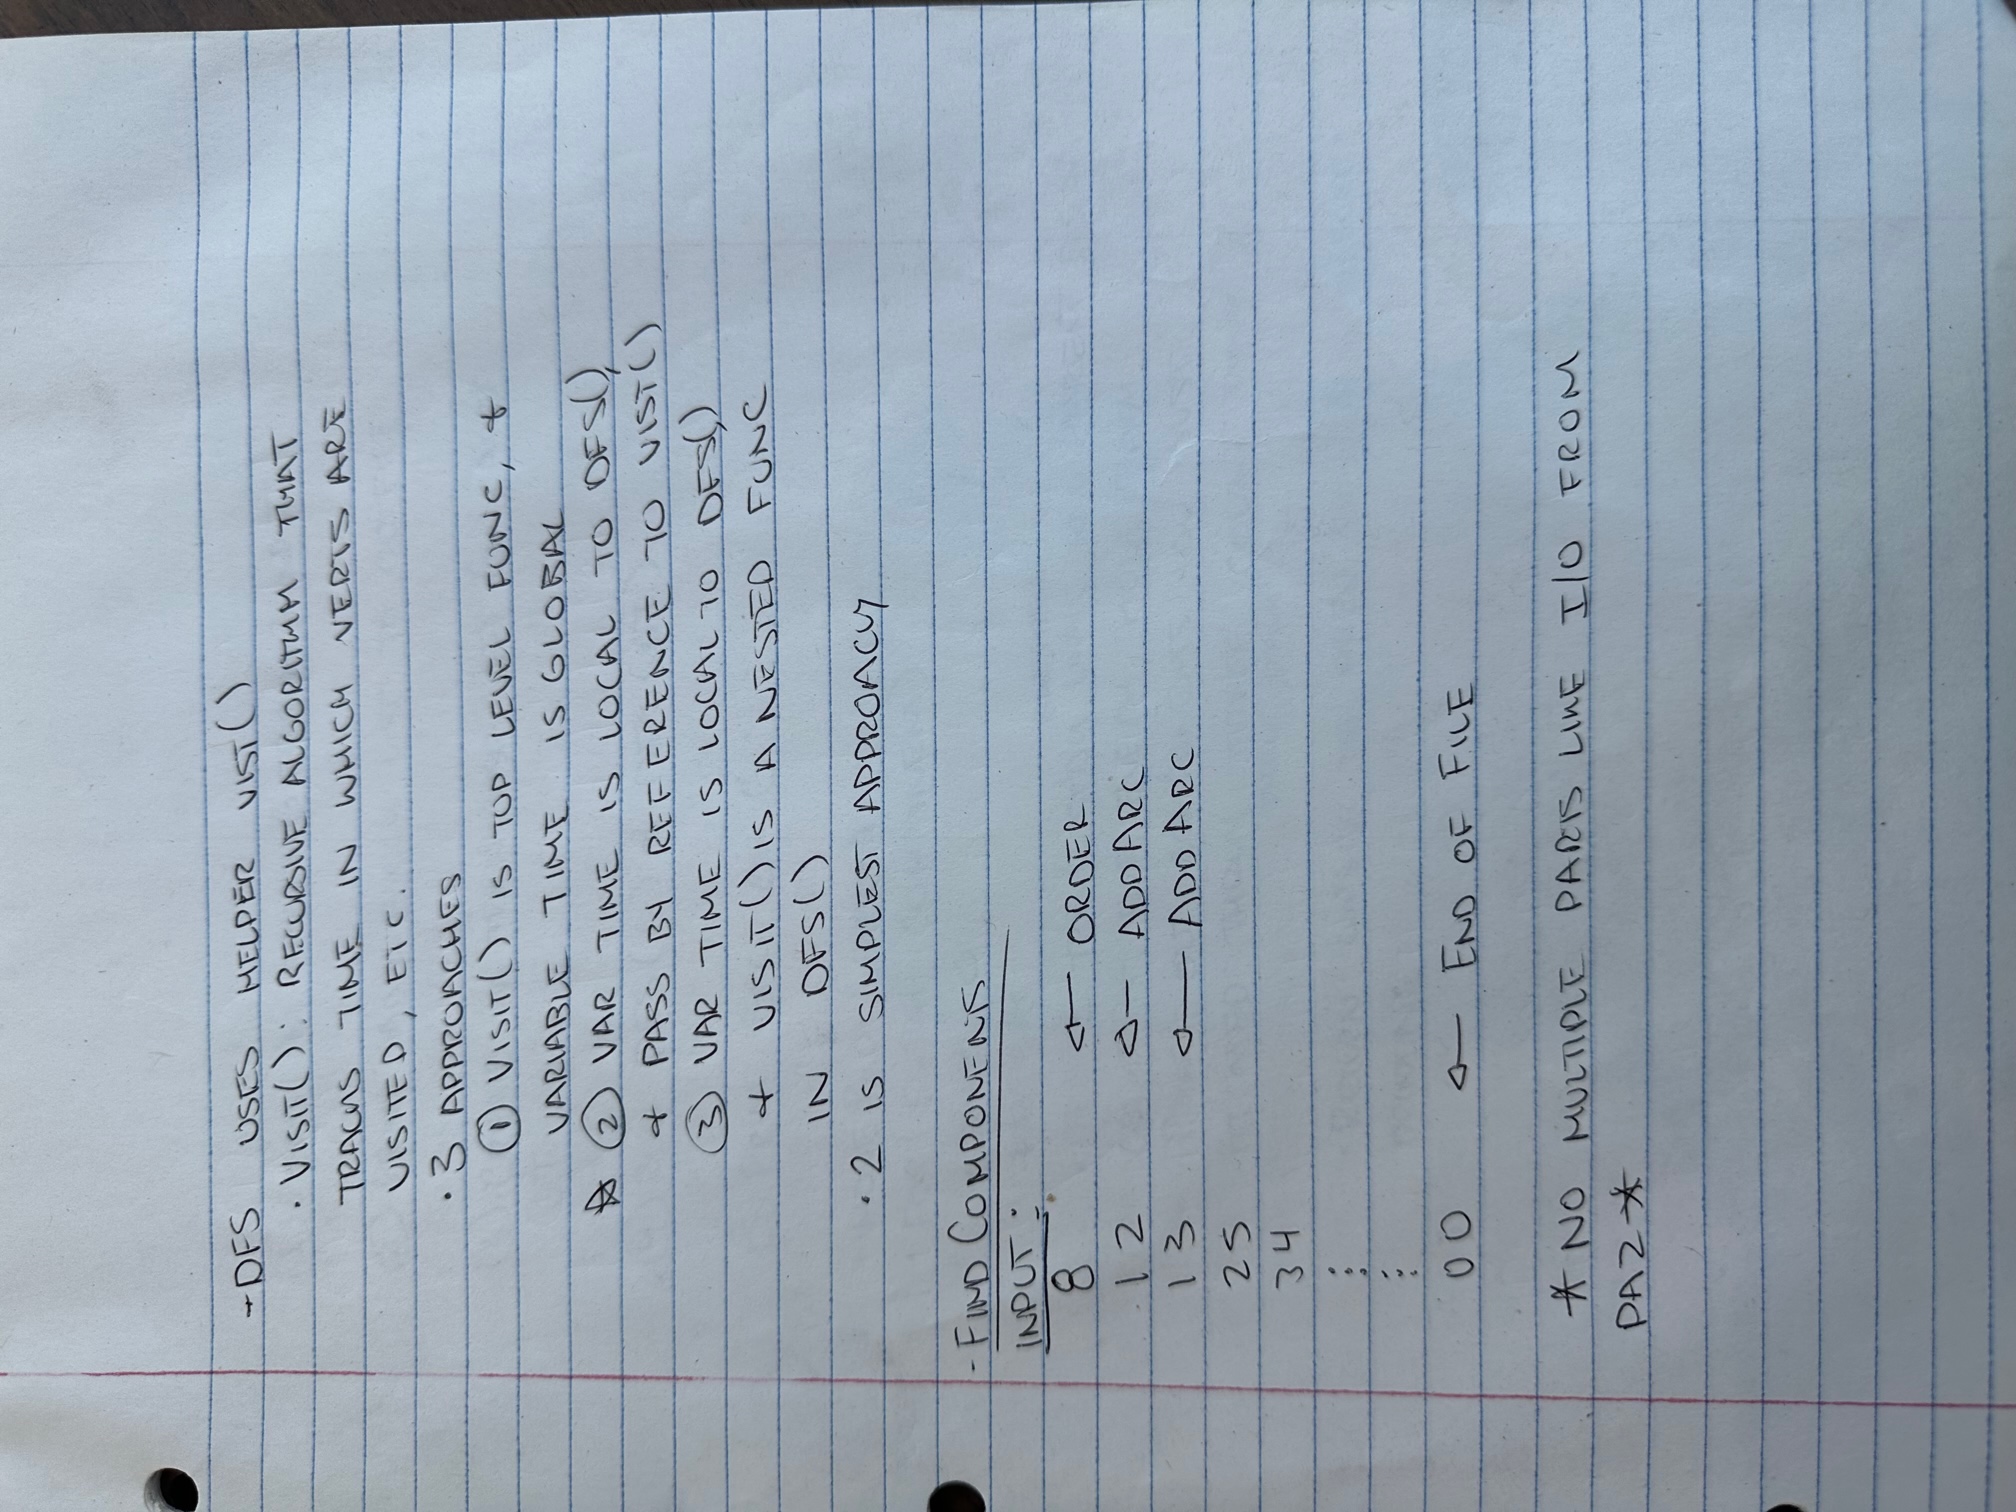 - DFS USES HELPER VIST()
· VISIT() : RECURSIVE ALGORITHM THAT
TRACKS TIME IN WHICH VERTS ARE
VISITED, ETC.
· 3 APPROACHES
① VISIT() IS TOP LEVEL FUNC, &
VARIABLE TIME IS GLOBAL
☆ ② VAR TIME IS LOCAL TO DFS(),
& PASS BY REFERENCE TO VIST()
③ VAR TIME IS LOCAL TO DFS()
& VISIT() IS A NESTED FUNC
IN DFS()
· 2 IS SIMPLEST APPROACH
- FIND COMPONENTS
INPUT:
8 ← ORDER
1 2 ← ADD ARC
1 3 ← ADD ARC
2 5
3 4
⋮
⋮
0 0 ← END OF FILE
* NO MULTIPLE PARTS LIKE I/O FROM
PA2 *